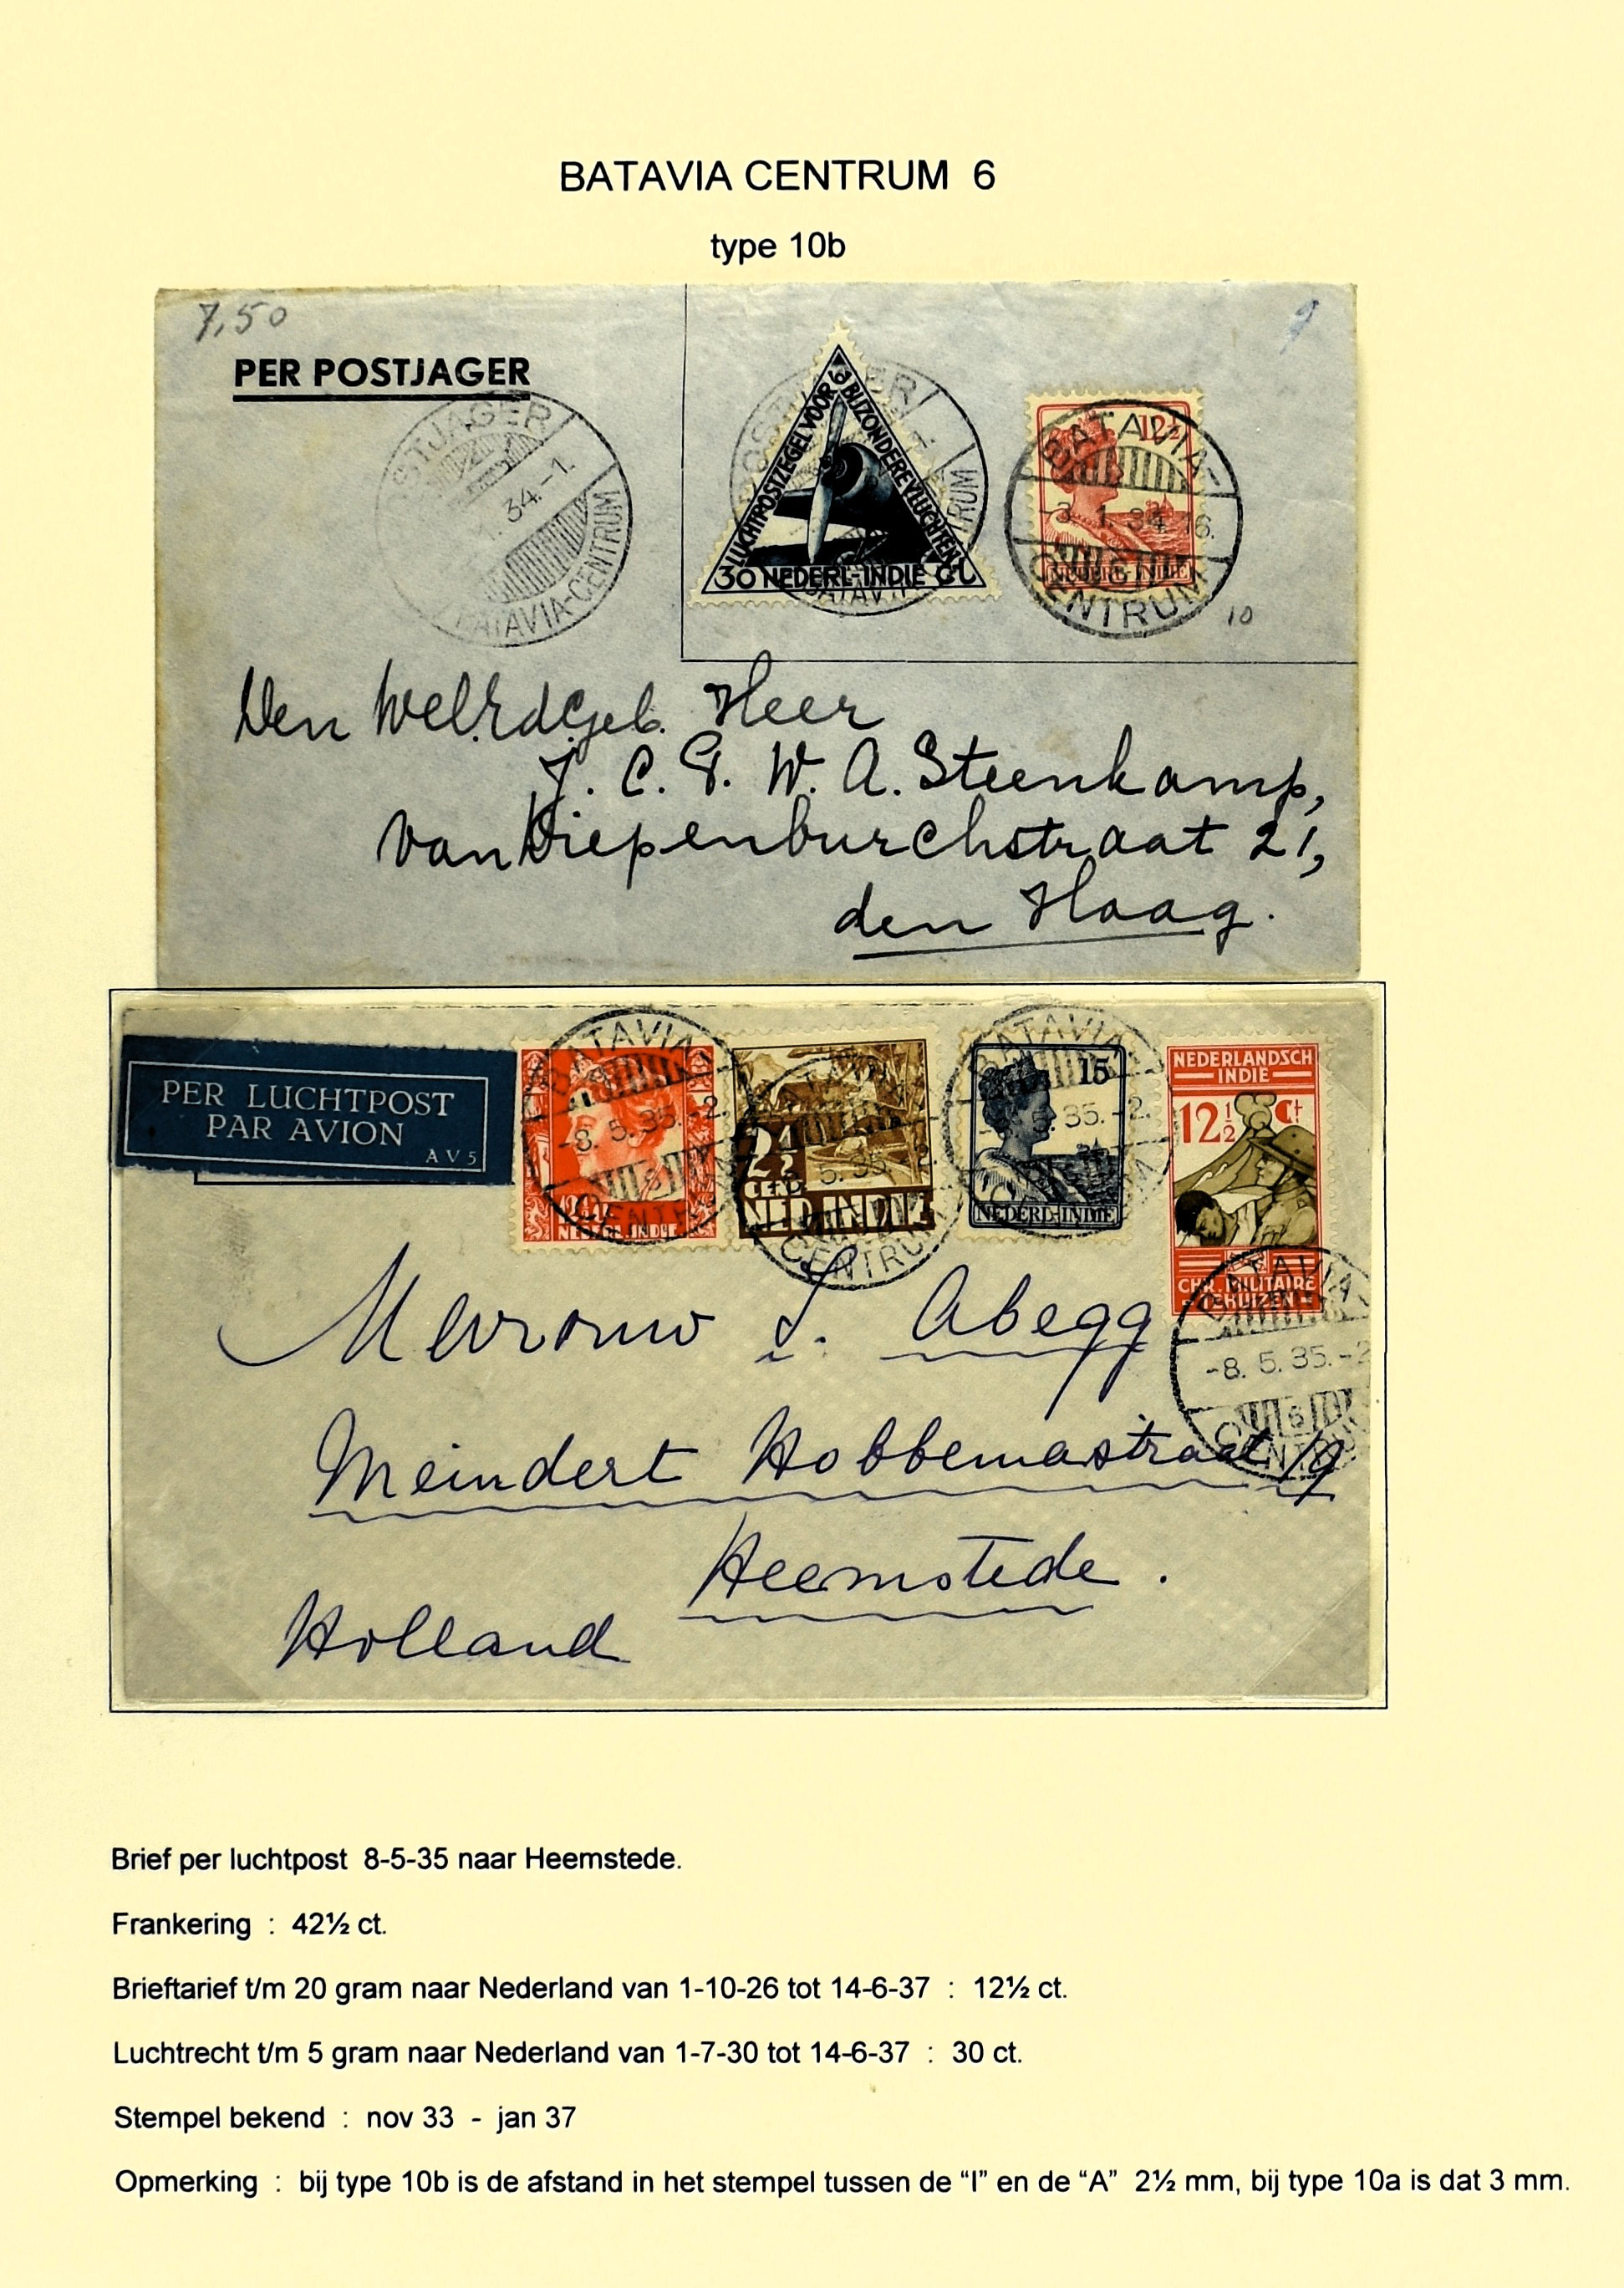 BATAVIA CENTRUM 6
type 10b
7,50
9
PER POSTJAGER
POSTJAGER
34.-1.
BATAVIA-CENTRUM
LUCHTPOSTZEGEL VOOR BIJZONDERE VLUCHTEN
30 NEDERL-INDIE CT
12½
NEDERL-INDIE
BATAVIA-
-3. 1. 34 16.
CENTRUM
10
Den Wel.Ed.Geb. Heer
J. C. G. W. A. Steenkamp,
van Diepenburchstraat 21,
den Haag.
PER LUCHTPOST
PAR AVION
AV5
BATAVIA-
-8. 5. 35.-2.
6
CENTRUM
2½
CENT
NED. INDIE
BATAVIA-
-8. 5. 35.-2.
CENTRUM
15
NEDERL-INDIE
NEDERLANDSCH
INDIE
12½ Ct
CHR. MILITAIRE
TEHUIZEN
BATAVIA
-8. 5. 35.-2
6
CENTRUM
Mevrouw S. Abegg
Meindert Hobbemastraat 19
Heemstede.
Holland
Brief per luchtpost 8-5-35 naar Heemstede.
Frankering : 42½ ct.
Brieftarief t/m 20 gram naar Nederland van 1-10-26 tot 14-6-37 : 12½ ct.
Luchtrecht t/m 5 gram naar Nederland van 1-7-30 tot 14-6-37 : 30 ct.
Stempel bekend : nov 33 - jan 37
Opmerking : bij type 10b is de afstand in het stempel tussen de “I” en de “A” 2½ mm, bij type 10a is dat 3 mm.